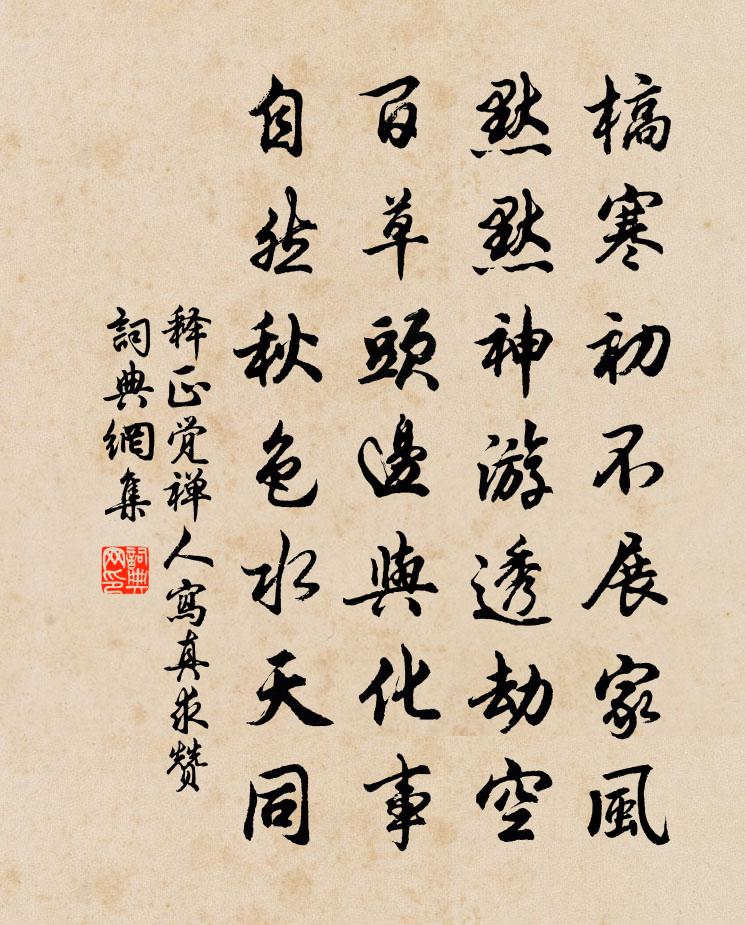 槁寒初不展家風
默默神游透劫空
百草頭邊與化事
自然秋色水天同
释正觉禅人寫真求赞
詞典網集
詞典网印